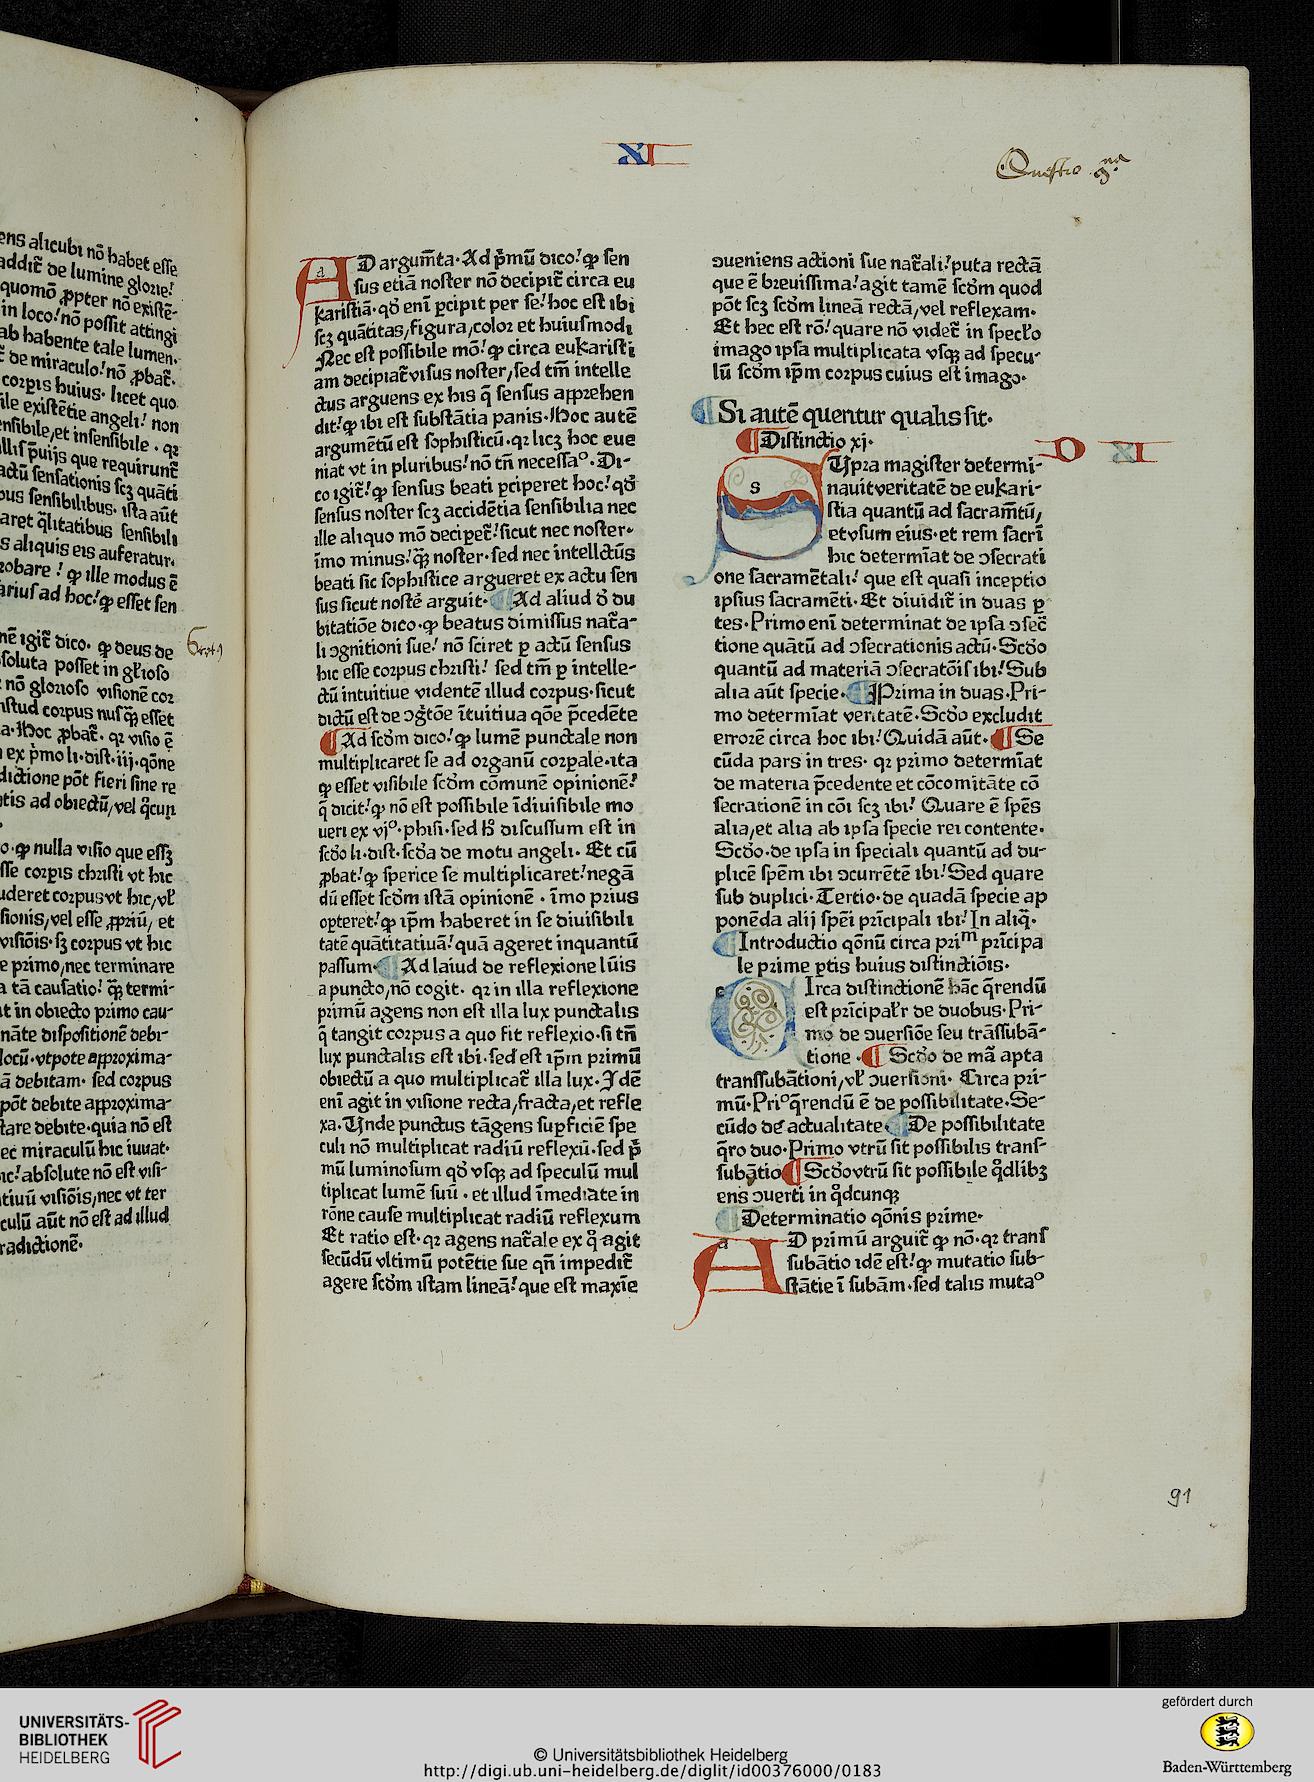 ens alicubi nō habet esse
addit̄ de lumine glorie!
quomō ꝓpter nō existē-
in loco! nō possit attingi
ab habente tale lumen.
de miraculo! nō ꝓbat̄.
corꝑis huius. licet quo
ile existētie angeli! non
ensibile, et insensibile. qꝛ
que requirunt̄
actū sensationis scꝫ quāti
bus sensibilibus. ista aūt
aret q̄litatibus sensibili
s aliquis eis auferatur.
obare! ꝙ ille modus ē
arius ad hoc! ꝙ esset sen
nē igit̄ dico. ꝙ deus de
soluta posset in gl̄ioso
nō glorioso visionē cor
istud corpus nusꝙ̄ esset
a. Hoc ꝓbat̄. qꝛ visio ē
ex p̄mo li. dist. iij. qōne
dictione pōt fieri sine re
atis ad obiectū, vel q̊cun
o. ꝙ nulla visio que essꝫ
sse corꝑis christi vt hic
uderet corpus vt hic, vl̄
sionis, vel esse ꝓpriū, et
visiōis. sꝫ corpus vt hic
e primo, nec terminare
a tā causatio! ꝙ̄ termi-
it in obiecto primo cau-
nāte dispositionē debi-
locū. vtpote approxima-
ā debitam. sed corpus
pōt debite approxima-
tare debite. quia nō est
ec miraculū hic iuuat.
ic! absolute nō est visi-
tiuū visiōis, nec vt ter
culū aūt nō est ad illud
radictionē.
XI
Questio 9na
AD argum̄ta. Ad p̄mū dico! ꝙ sen
sus etiā noster nō decipit̄ circa eu
karistiā. qd̄ enī ꝑcipit per se! hoc est ibi
scꝫ quātitas, figura, color et huiusmodi
Nec est possibile mō! ꝙ circa eukaristi
am decipiat̄ visus noster, sed tm̄ intelle
ctus arguens ex his q̄ sensus apprehen
dit! ꝙ ibi est substātia panis. Hoc autē
argumētū est sophisticū. qꝛ licꝫ hoc eue
niat vt in pluribus! nō tn̄ necessaº. Di-
co igit̄! ꝙ sensus beati ꝑciperet hoc! qd̄
sensus noster scꝫ accidētia sensibilia nec
ille aliquo mō deciꝑet̄! sicut nec noster.
īmo minus! ꝙ̄ noster. sed nec intellc̄tūs
beati sic sophistice argueret ex actu sen
sus sicut noste᷑ arguit. Ad aliud d̄ du
bitatiōe dico. ꝙ beatus dimissus nat̄a-
li ɔgnitioni sue! nō sciret ꝑ actū sensus
hic esse corpus christi! sed tm̄ ꝑ intelle-
ctū intuitiue videntē illud corpus. sicut
dictū est de ɔgt̄ōe ītuitiua qōe p̄cedēte
Ad scd̄m dico! ꝙ lumē punctale non
multiplicaret se ad organū corꝑale. ita
ꝙ esset visibile scd̄m cōmunē opinionē!
q̄ dicit! ꝙ nō est possibile īdiuisibile mo
ueri ex vjº. phisi. sed hº discussum est in
scd̄o li. dist. scd̄a de motu angeli. Et cū
ꝓbat! ꝙ sperice se multiplicaret! negā
dū esset scd̄m istā opinionē. īmo prius
opteret! ꝙ ip̄m haberet in se diuisibili
tatē quātitatiuā! quā ageret inquantū
passum. Ad laiud de reflexione lūis
a puncto, nō cogit. qꝛ in illa reflexione
primū agens non est illa lux punctalis
q̄ tangit corpus a quo fit reflexio. si tn̄
lux punctalis est ibi. sed est ip̄m primū
obiectū a quo multiplicat̄ illa lux. Idē
enī agit in visione recta, fracta, et refle
xa. Unde punctus tāgens suꝑficiē spe
culi nō multiplicat radiū reflexū. sed p̄
mū luminosum qd̄ vsqꝫ ad speculū mul
tiplicat lumē suū. et illud īmediate in
rōne cause multiplicat radiū reflexum
Et ratio est. qꝛ agens nat̄ale ex q̊ agit
secūdū vltimū potētie sue qn̄ impedit̄
agere scd̄m istam lineā! que est maxīe
ɔueniens actioni sue nat̄ali! puta rectā
que ē breuissima! agit tamē scd̄m quod
pōt scꝫ scd̄m lineā rectā, vel reflexam.
Et hec est rō! quare nō videt̄ in specl̄o
imago ipsa multiplicata vsqꝫ ad specu-
lū scd̄m ip̄m corpus cuius est imago.
Si autē querītur qualis sit.
Distinctio xj.
D XI
SUpra magister determi-
nauit veritatē de eukari-
stia quantū ad sacram̄tū,
et vsum eius. et rem sacrī
hic determīat de ɔsecrati
one sacramētali! que est quasi inceptio
ipsius sacramēti. Et diuidit̄ in duas ꝑ
tes. Primo enī determinat de ipsa ɔsec̄
tione quātū ad ɔsecrationis actū. Scd̄o
quantū ad materiā ɔsecratōis ibi! Sub
alia aūt specie. Prima in duas. Pri-
mo determīat veritatē. Scd̄o excludit
errorē circa hoc ibi! Quidā aūt. Se
cūda pars in tres. qꝛ primo determīat
de materia p̄cedente et cōcomitāte cō
secrationē in cōi scꝫ ibi! Quare ē spēs
alia, et alia ab ipsa specie rei contente.
Scd̄o. de ipsa in speciali quantū ad du-
plicē spēm ibi ɔcurrētē ibi! Sed quare
sub duplici. Tertio. de quadā specie ap
ponēda alij spēi prīcipali ibi! In aliq̄.
Introductio qōnū circa priᵐ prīcipa
le prime ꝑtis huius distinctiōis.
CIrca distinctionē hāc q̄rendū
est prīcipal̄r de duobus. Pri-
mo de ɔuersiōe seu trāssubā-
tione. Scd̄o de mā apta
transsubātioni, vl̄ ɔuersioni. Circa pri-
mū. Priº q̄rendū ē de possibilitate. Se-
cūdo de actualitate De possibilitate
q̄ro duo. Primo vtrū sit possibilis trans-
subātio Scd̄o vtrū sit possibile q̊dlibꝫ
ens ɔuerti in q̊dcunqꝫ
Determinatio qōnis prime.
AD primū arguit̄ ꝙ nō. qꝛ trans
subātio idē est! ꝙ mutatio sub-
stātie ī subām. sed talis mutaº
91
UNIVERSITÄTS-
BIBLIOTHEK
HEIDELBERG
© Universitätsbibliothek Heidelberg
http://digi.ub.uni-heidelberg.de/diglit/id00376000/0183
gefördert durch
Baden-Württemberg